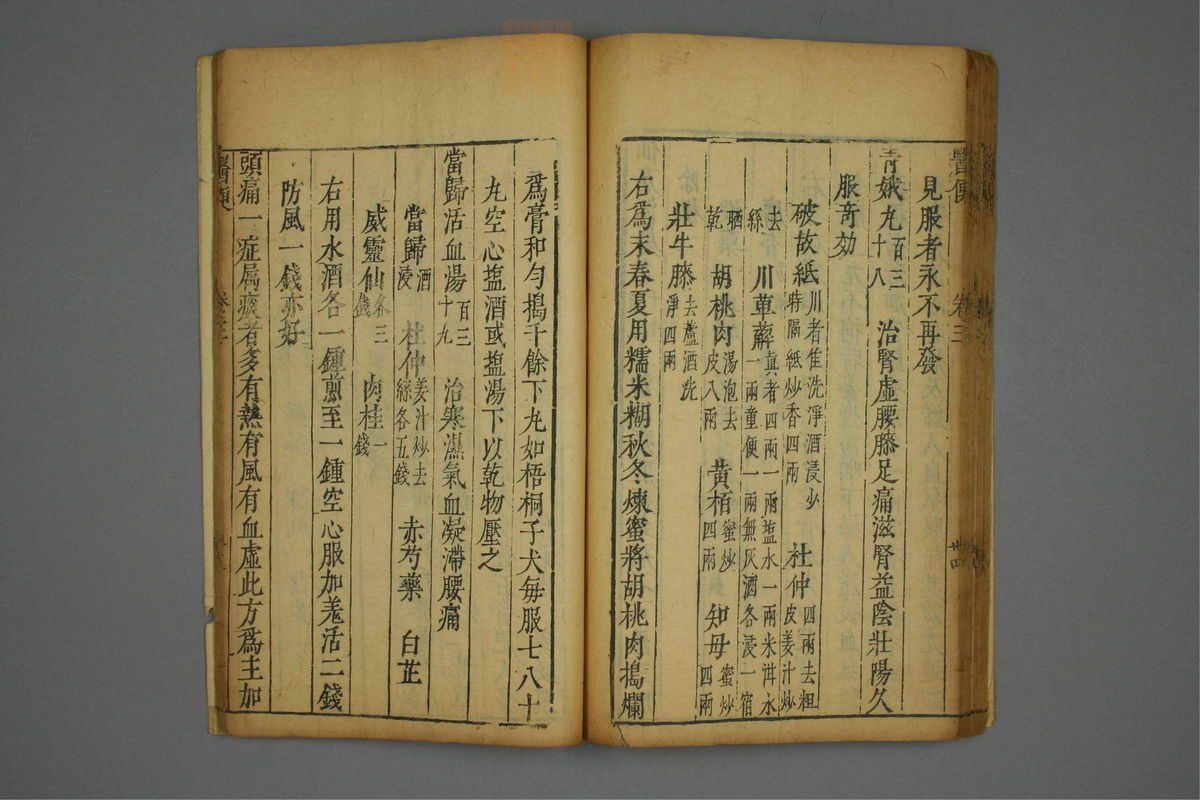 醫便 卷三 廿四
見服者永不再發
青娥丸百三十八 治腎虛腰膝足痛滋腎益陰壯陽久
服竒効
破故紙川者隹洗淨酒浸少特隔紙炒香四兩 杜仲四兩去粗皮姜汁炒
去絲 川萆薢真者四兩一兩塩水一兩米泔水一兩童便一兩無灰酒各浸一宿
晒乾 胡桃肉湯泡去皮八兩 黄栢蜜炒四兩 知母蜜炒四兩
壯牛膝去蘆酒洗淨四兩
右爲末春夏用糯米糊秋冬煉蜜將胡桃肉搗爛
爲膏和勻搗千餘下丸如梧桐子大每服七八十
丸空心塩酒或塩湯下以乾物壓之
當歸活血湯百三十九 治寒濕氣血凝滯腰痛
當歸酒浸 杜仲姜汁炒去絲各五錢 赤芍藥 白芷
威靈仙各三錢 肉桂一錢
右用水酒各一鍾煎至一鍾空心服加羗活二錢
防風一錢亦好
頭痛一症屬痰者多有熱有風有血虛此方爲主加
醫便